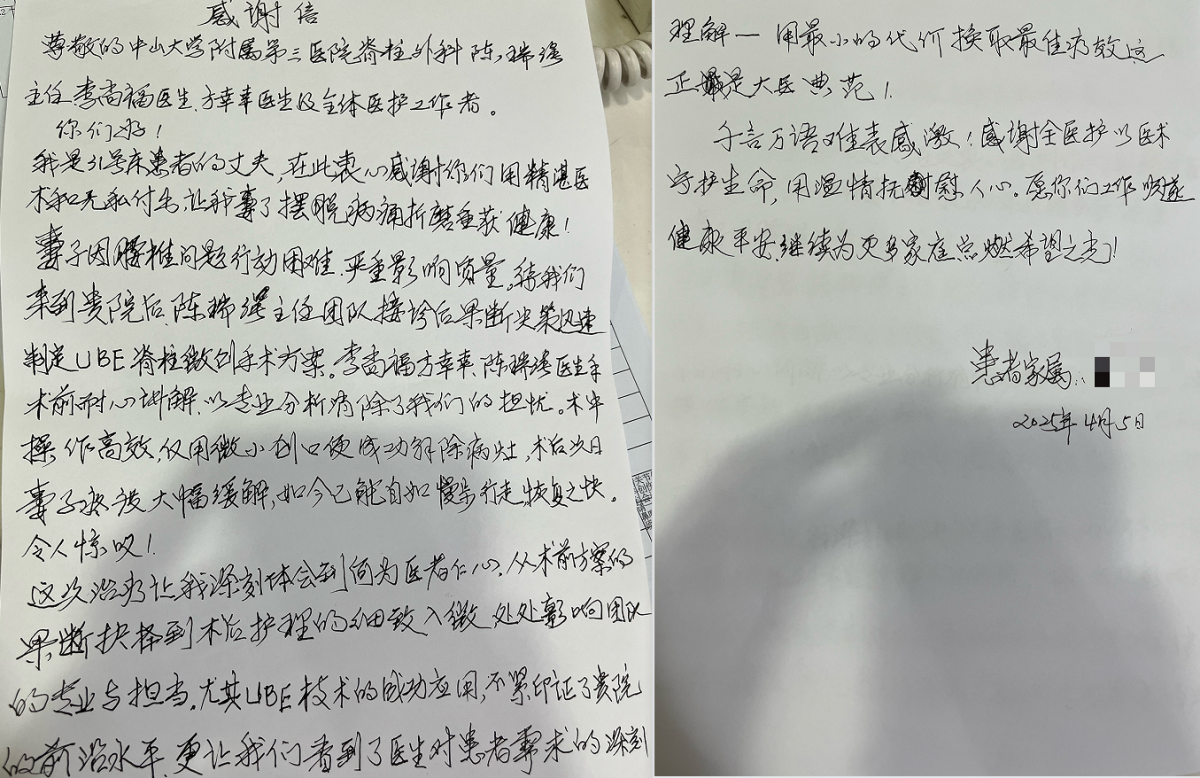 感谢信
尊敬的中山大学附属第三医院脊柱外科陈瑞强
主任李尚福医生、方幸丰医生及全体医护工作者。
你们好！
我是31号床患者的丈夫，在此衷心感谢你们用精湛医
术和无私付出，让我妻子摆脱病痛折磨重获健康！
妻子因腰椎问题行动困难，严重影响质量，待我们
来到贵院后，陈瑞强主任团队接诊后果断决策迅速
制定UBE脊柱微创手术方案。李尚福方幸来、陈瑞强医生手
术前耐心讲解、以专业分析消除了我们的担忧。术中
操作高效，仅用微小创口便成功解除病灶，术后次日
妻子疼大幅缓解，如今已能自如慢步行走，恢复之快。
令人惊叹！
这次治疗让我深刻体会到何为医者仁心，从术前方案的
果断抉择到术后护理的细致入微，处处影响团队
的专业与担当。尤其UBE技术的成功应用，不紧印证了贵院
的前沿水平，更让我们看到了医生对患者需求的深刻
理解一用最小的代价换取最佳疗效这
正是大医典范！
千言万语难表感激！感谢全医护以医术
守护生命，用温情抚慰人心。愿你们工作顺遂
健康平安，继续为更多家庭点燃希望之光！
患者家属：
2025年4月5日